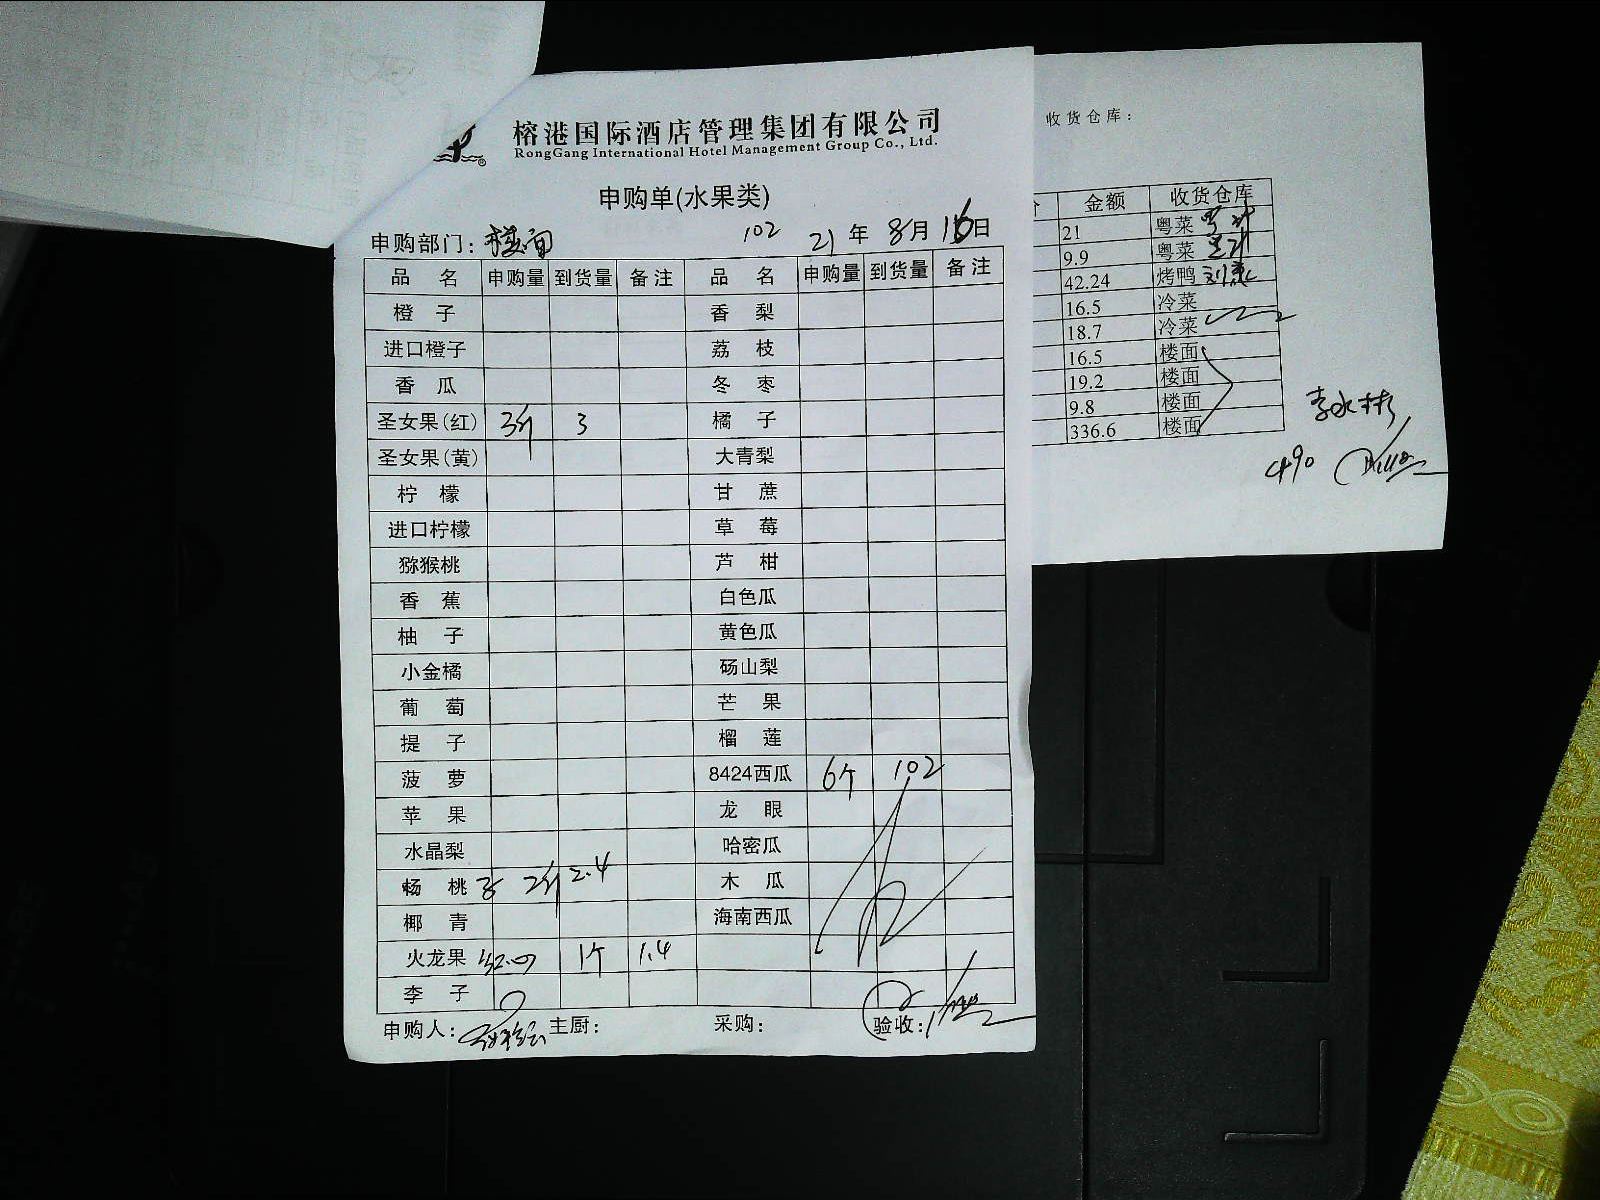 榕港国际酒店管理集团有限公司
RongGang International Hotel Management Group Co., Ltd.
申购单(水果类)
申购部门：楼面 102 21年8月16日
品名 申购量 到货量 备注 品名 申购量 到货量 备注
橙子 香梨
进口橙子 荔枝
香瓜 冬枣
圣女果(红) 3斤 3 橘子
圣女果(黄) 大青梨
柠檬 甘蔗
进口柠檬 草莓
猕猴桃 芦柑
香蕉 白色瓜
柚子 黄色瓜
小金橘 砀山梨
葡萄 芒果
提子 榴莲
菠萝 8424西瓜 6个 102
苹果 龙眼
水晶梨 哈密瓜
杨桃 2斤 2.4 木瓜
椰青 海南西瓜
火龙果 红心 1个 1.4
李子
申购人： 主厨： 采购： 验收：
收货仓库：
金额 收货仓库
21 粤菜
9.9 粤菜
42.24 烤鸭
16.5 冷菜
18.7 冷菜
16.5 楼面
19.2 楼面
9.8 楼面
336.6 楼面
490